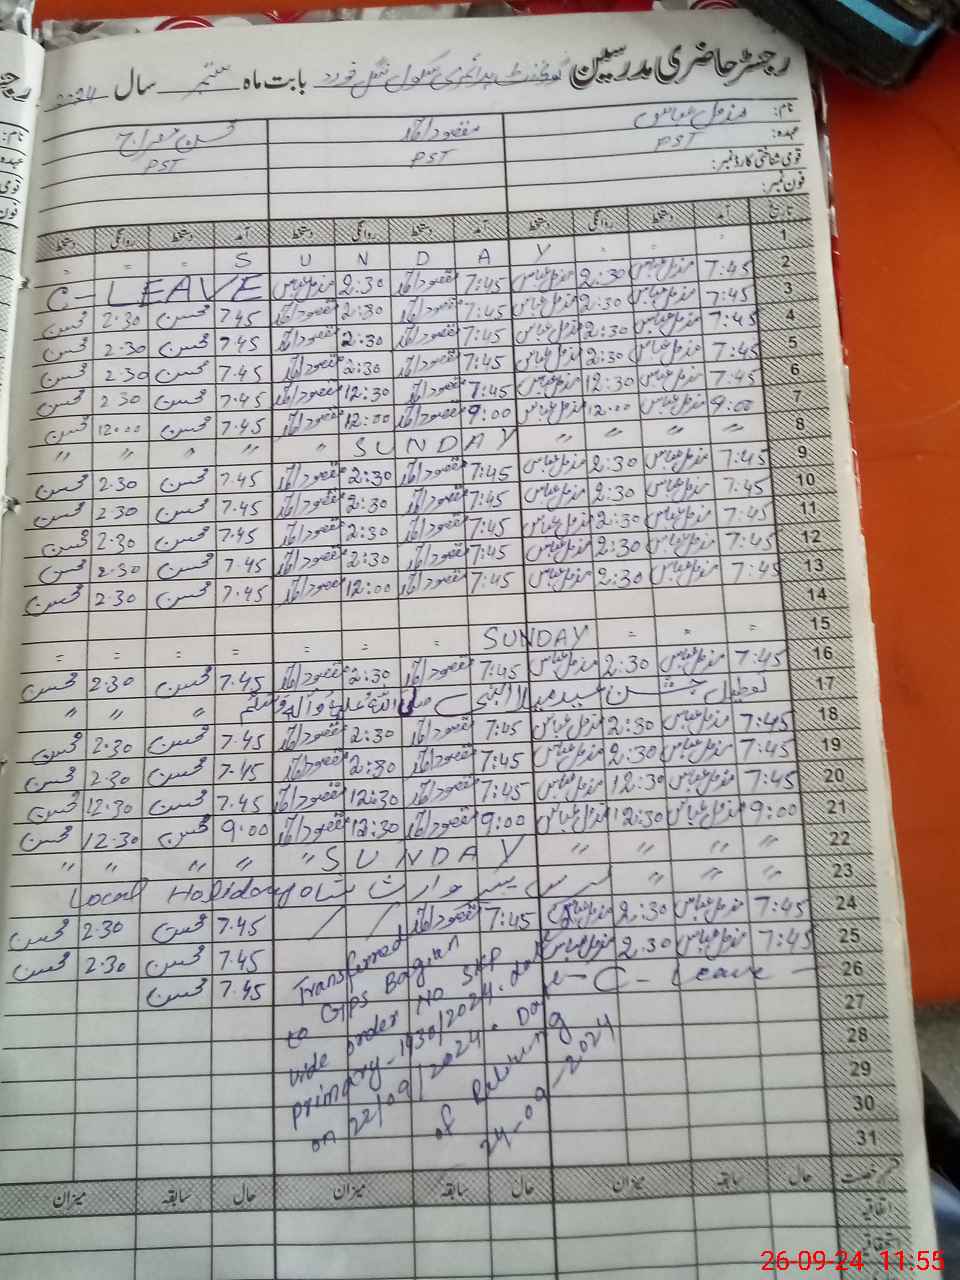 رجسٹر حاضری مدرسین گورنمنٹ پرائمری سکول بابت ماہ ستمبر سال 2024
نام: مزمل عباس مقصود احمد
عہدہ: PST PST PST
قومی شناختی کارڈ نمبر:
فون نمبر:
تاریخ آمد دستخط روانگی دستخط آمد دستخط روانگی دستخط آمد دستخط روانگی دستخط
1 " " " S U N D A Y " " "
2 7:45 مزمل عباس 2:30 مزمل عباس 7:45 مقصود احمد 2:30 C-LEAVE
3 7:45 مزمل عباس 2:30 مزمل عباس 7:45 مقصود احمد 2:30 مقصود احمد 7.45 محسن 2.30 محسن
4 7:45 مزمل عباس 2:30 مزمل عباس 7:45 مقصود احمد 2:30 مقصود احمد 7.45 محسن 2.30 محسن
5 7:45 مزمل عباس 2:30 مزمل عباس 7:45 مقصود احمد 2:30 مقصود احمد 7.45 محسن 2.30 محسن
6 7:45 مزمل عباس 12:30 مزمل عباس 7:45 مقصود احمد 12:30 مقصود احمد 7.45 محسن 2.30 محسن
7 9:00 مزمل عباس 12:00 مزمل عباس 9:00 مقصود احمد 12:00 مقصود احمد 7.45 محسن 12:00 محسن
8 " " " " SUNDAY " " " " "
9 7:45 مزمل عباس 2:30 مزمل عباس 7:45 مقصود احمد 2:30 مقصود احمد 7.45 محسن 2.30 محسن
10 7:45 مزمل عباس 2:30 مزمل عباس 7:45 مقصود احمد 2:30 مقصود احمد 7.45 محسن 2.30 محسن
11 7:45 مزمل عباس 2:30 مزمل عباس 7:45 مقصود احمد 2:30 مقصود احمد 7.45 محسن 2.30 محسن
12 7:45 مزمل عباس 2:30 مزمل عباس 7:45 مقصود احمد 2:30 مقصود احمد 7.45 محسن 2.30 محسن
13 7:45 مزمل عباس 2:30 مزمل عباس 7:45 مقصود احمد 12:00 مقصود احمد 7.45 محسن 2.30 محسن
14
15 = = = SUNDAY = = = = = = =
16 7:45 مزمل عباس 2:30 مزمل عباس 7:45 مقصود احمد 2:30 مقصود احمد 7.45 محسن 2.30 محسن
17 تعطیل جشن عید میلاد النبی صلی اللہ علیہ وآلہ وسلم " " " "
18 7:45 مزمل عباس 2:30 مزمل عباس 7:45 مقصود احمد 2:30 مقصود احمد 7.45 محسن 2.30 محسن
19 7:45 مزمل عباس 2:30 مزمل عباس 7:45 مقصود احمد 2:30 مقصود احمد 7.45 محسن 2.30 محسن
20 7:45 مزمل عباس 12:30 مزمل عباس 7:45 مقصود احمد 12:30 مقصود احمد 7.45 محسن 12.30 محسن
21 9:00 مزمل عباس 12:30 مزمل عباس 9:00 مقصود احمد 12:30 مقصود احمد 9.00 محسن 12.30 محسن
22 " " " " SUNDAY " " " " "
23 " " عرس وارث شاہ Local Holiday
24 7:45 مزمل عباس 2:30 مزمل عباس 7:45 مقصود احمد / / 7.45 محسن 2.30 محسن
25 7:45 مزمل عباس 2.30 مزمل عباس 7.45 محسن 2.30 محسن
26 - C - Leave - 7.45 محسن
27
28
29
30
31
Transferred
to GPS Bagian
vide order No SKP
primary-1930/2024. date
on 22/09/2024. Date
of Reliving
24-09-2024
قسم رخصت حال سابقہ میزان حال سابقہ میزان حال سابقہ میزان
اتفاقیہ
26-09-24 11:55